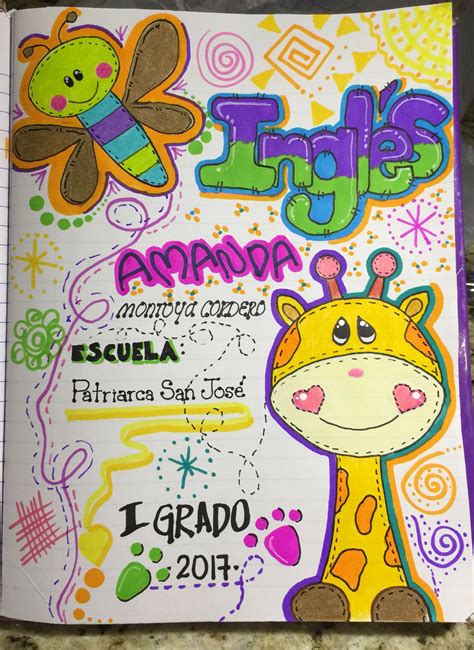 Inglés
AMANDA
montoya cordero
ESCUELA:
Patriarca San José
I GRADO
·2017·